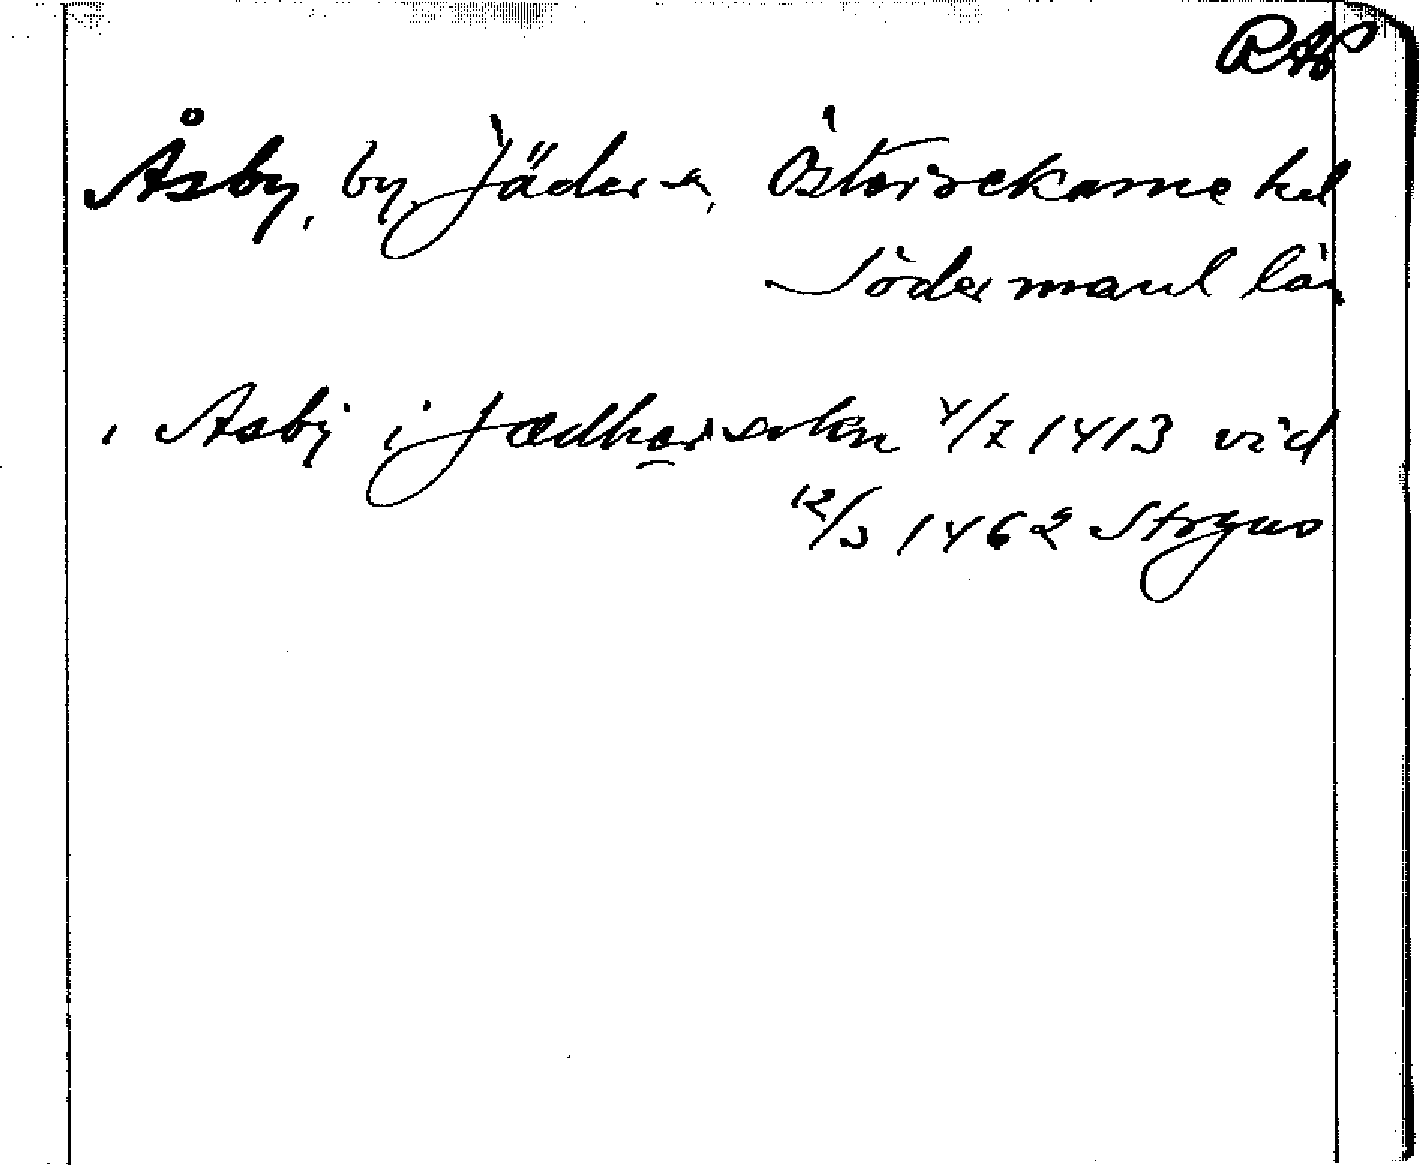 RAP
Åsby, by, Jäder sn, Österrekarne hd
Södermanl län
, Asby i Jædhersokn 4/7 1413 vid
12/3 1462 Strgns